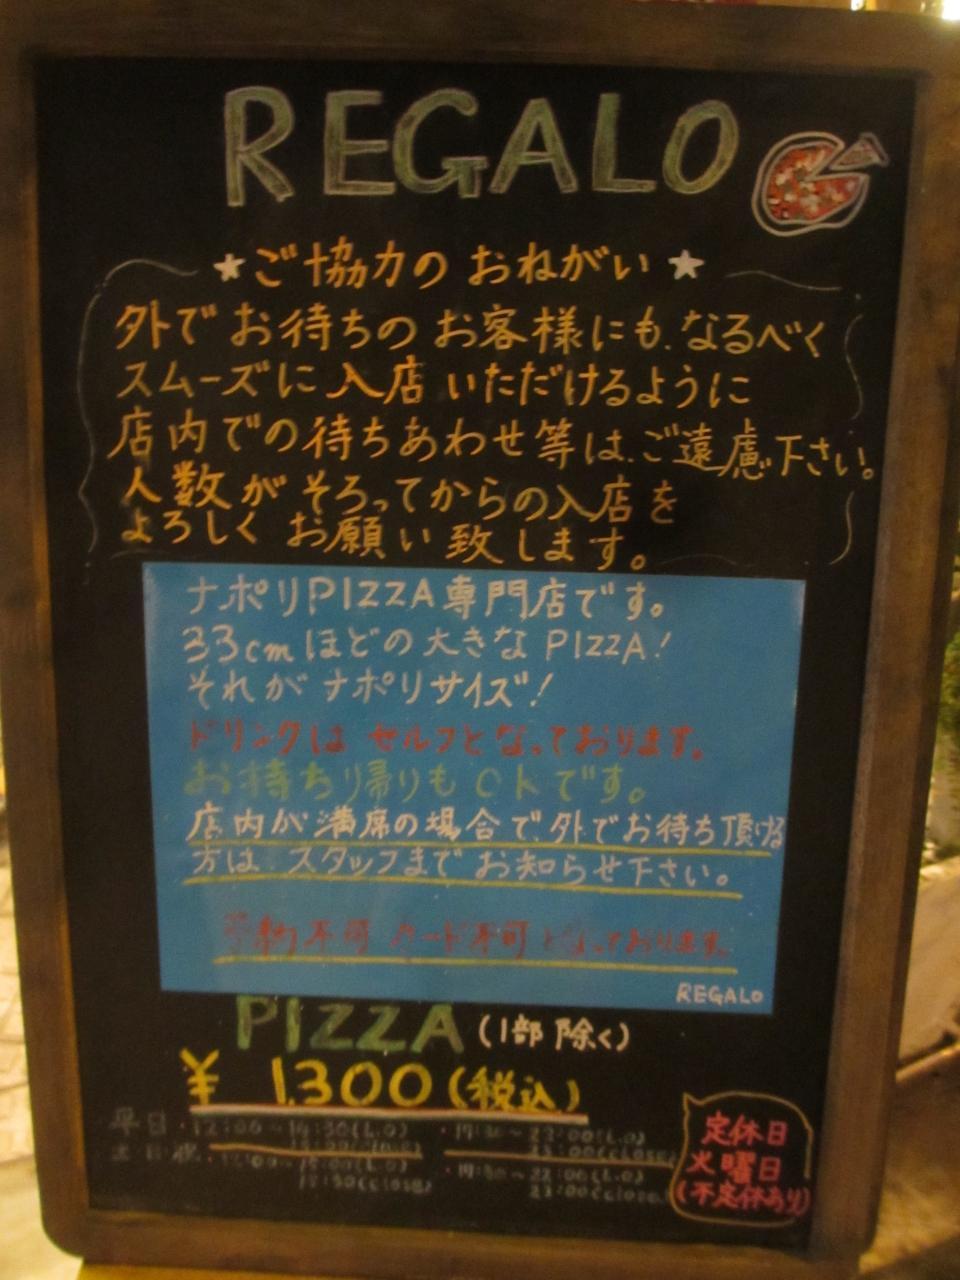 REGALO
★ご協力のおねがい★
外でお待ちのお客様にも、なるべく
スムーズに入店いただけるように
店内での待ちあわせ等は、ご遠慮下さい。
人数がそろってからの入店を
よろしくお願い致します。
ナポリPIZZA専門店です。
33cmほどの大きなPIZZA!
それがナポリサイズ!
ドリンクはセルフとなっております。
お持ち帰りもOKです。
店内が満席の場合で、外でお待ち頂ける
方はスタッフまでお知らせ下さい。
予約不可 カード不可となっております。
REGALO
PIZZA(1部除く)
¥1,300(税込)
平日・12:00~14:30(L.O) ・17:30~22:00(L.O)
23:00(close)
土日祝 (L.O) 22:00(L.O)
15:30(close) 23:00(close)
定休日
火曜日
(不定休あり)